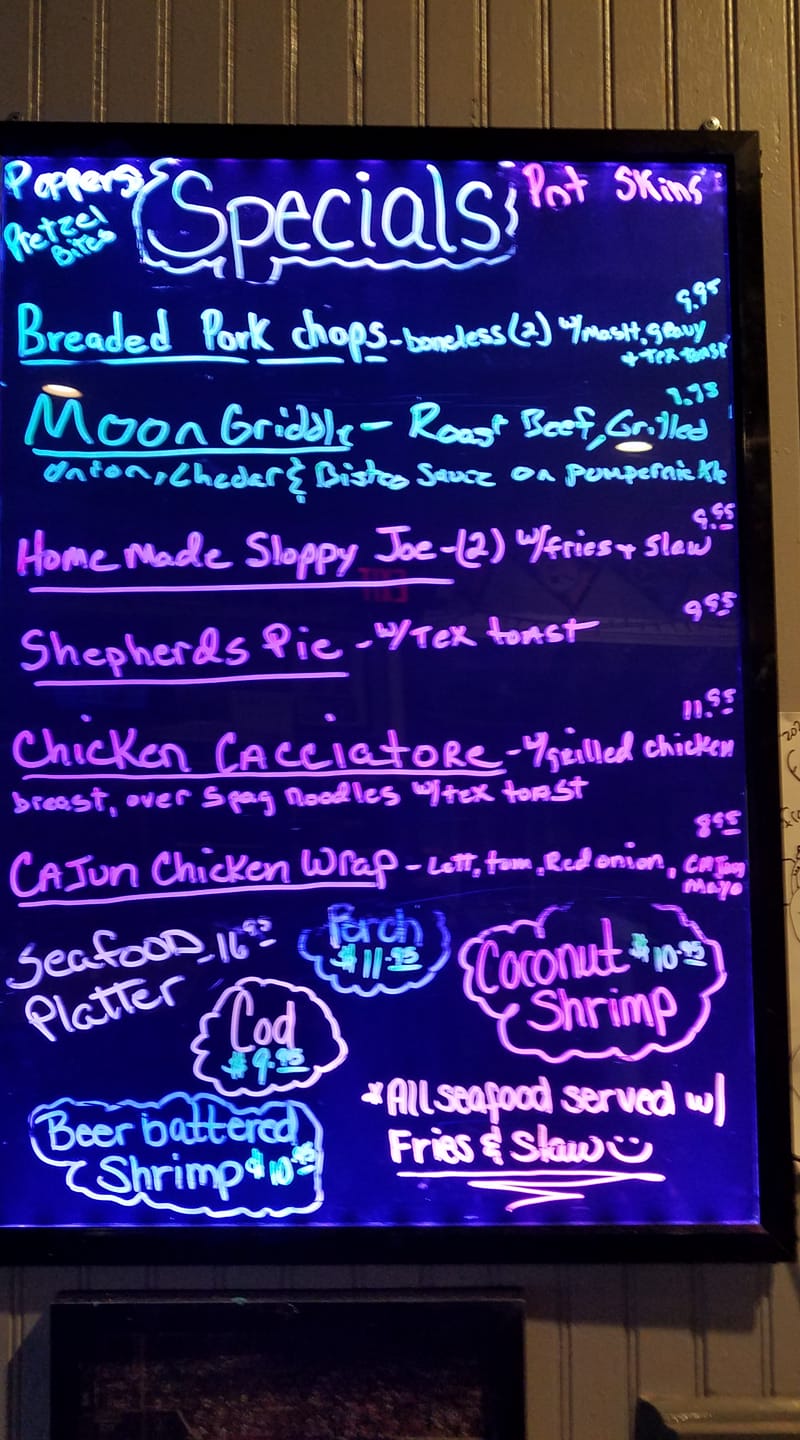 Poppers
Specials
Pot Skins
Pretzel
Bites
9.95
Breaded Pork chops-boneless(2) w/Mash, gravy
+ Tex toast
9.95
Moon Griddle - Roast Beef, Grilled
Onion, Chedar & Bistro Sauce on pumpernickle
9.95
Home Made Sloppy Joe-(2) w/fries + Slaw
9.95
Shepherds Pie - w/Tex toast
11.95
Chicken Cacciatore - w/grilled chicken
breast, over Spag Noodles w/tex toast
8.95
CAJun Chicken Wrap - Lett, tom, Red onion, CAJun
Mayo
Seafood - 16.95
Platter
Perch
$11.95
Coconut $10.95
Shrimp
Cod
$9.95
Beer battered
Shrimp $10.95
*All seafood served w/
Fries & Slaw